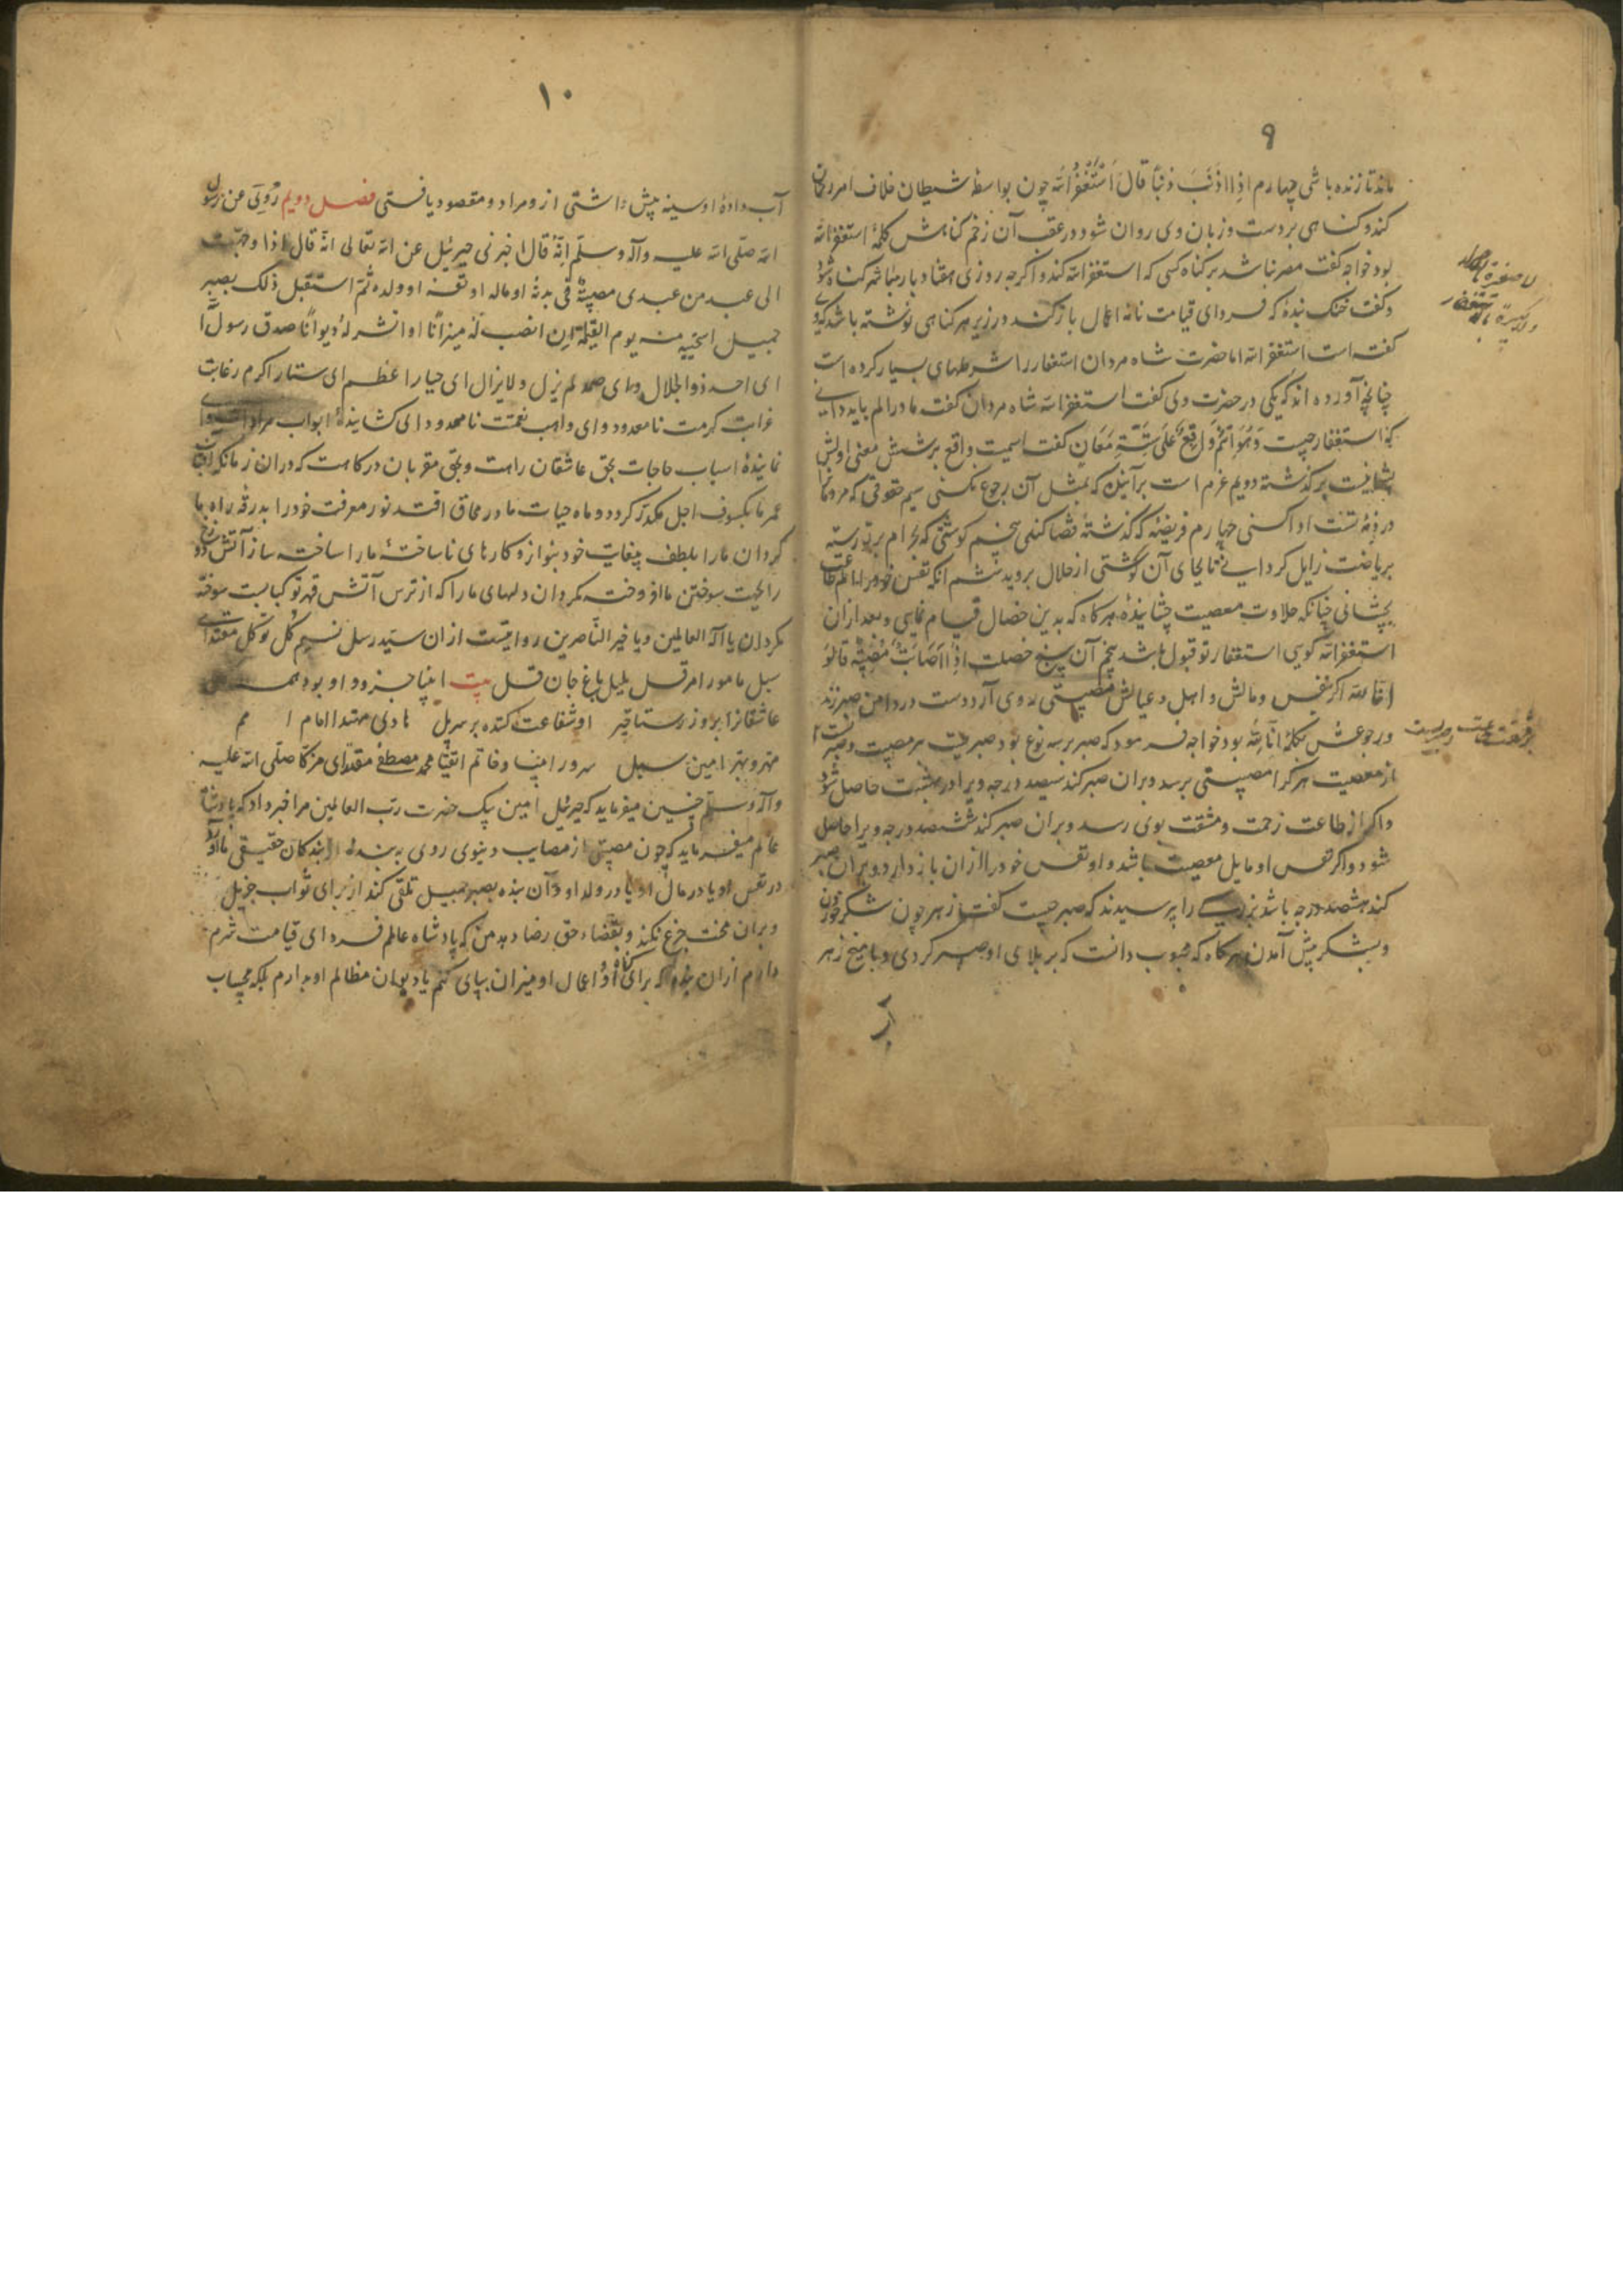 ۹
ماند تا زنده باشی چهارم اِذا اَذنَبَ ذنبًا قالَ اَستَغفِرُ الله چون بواسطهٔ شیطان خلاف امر رحمان
کند و کناهی بر دست و زبان وی روان شود در عقب آن زخم کناهش کلمهٔ استغفرالله
بود خواجه کفت مصر نباشد بر کناه کسی که استغفرالله کند و اکرچه روزی هفتاد بار مباشر کناه شود
و کفت خنک بندهٔ که فردای قیامت نامهٔ اعمال باز کند در زیر هر کناهی نوشته باشد که وی
کفته است استغفرالله اما حضرت شاه مردان استغفار را شرطهای بسیار کرده است
چنانچه آورده اند که یکی در حضرت وی کفت استغفرالله شاه مردان کفت مادر الم باید دانی
که استغفار چیست وَهُوَ اسمٌ واقِعٌ عَلی سِتَّةِ مَعَانٍ کفت اسمیست واقع بر شش معنی اولش
پشیمانیست بر کذشته دویم عزم است برآنکه که بمثل آن رجوع نکنی سیم حقوقی که مردم را
در ذمهٔ تست ادا کنی چهارم فریضه که کذشتهٔ قضا کنی پنجم کوشتی که بحرام بر تو رسته
بریاضت زایل کردانی تا بجای آن کوشتی از حلال بروید ششم آنکه نفس خود را الم طاعت
بچشانی چنانکه حلاوت معصیت چشانیدهٔ هر کاه که بدین خصال قیام نمایی و بعد ازان
استغفرالله کویی استغفار تو قبول باشد پنجم آن پنج خصلت اِذا اَصَابَتهُ مُصِیبَةٌ قالَوُ
اِنّا لله اکر نفس و مالش و اهل و عیالش مصیبتی روی آرد دست در دامن صبر زند
و رجوعش بکلمهٔ انّا لِلّه بود خواجه فرمود که صبر بر سه نوع بود صبریست بر مصیبت و صبریست
از معصیت هر کرا مصیبتی برسد و بران صبر کند سیصد درجه ویرا در بهشت حاصل شود
و اکر از طاعت زحمت و مشقت بوی رسد و بران صبر کند ششصد درجه ویرا حاصل
شود و اکر نفس او مایل معصیت باشد و او نفس خود را ازان باز دارد و بران صبر
کند هشصد درجه باشد بزرکی را پرسیدند که صبر چیست کفت زهر چون شکر خوردن
و بشکر پیش آمدن هر کاه که محبوب دانست که بر بلای او صبر کردی و با منج زهر
۱۰
آب دادهٔ او سینه پیش داشتی ازو مراد و مقصود یافتی فصل دویم رُوِیَ عن رسول
الله صلّی الله علیه وآله وسلّم انّهُ قال اخبرنی جبرئیل عن الله تعالی انّهُ قال اذا وجّهت
الی عبد من عبدی مصیبةٌ فی بدنه او ماله او نفسه او ولده ثمّ استقبل ذلک بصبرٍ
جمیل استحییه منه یوم القیمة ان انصب له میزانًا او انشر لهُ دیوانًا صدق رسول الله
ای احد ذوالجلال و ای صمد لم یزل و لایزال ای جبار اعظم ای ستار اکرم رغایت
غرایت کرمت نامعدود و ای واهب نعمت نامحدود ای کشایندهٔ ابواب مرادات و ای
نمایندهٔ اسباب حاجات بحق عاشقان راهت و بحق مقربان درکاهت که دران زمان که آفتاب
عمر ما بکسوف اجل مکدّر کردد و ماه حیات ما در محاق افتد نور معرفت خود را بدرقهٔ راه ما
کردان ما را بلطف بیغایت خود بنواز و کارهای ناساختهٔ ما را ساخته ساز آتش دوزخ
را بجهت سوختن ما افروخته مکردان دلهای ما را که از ترس آتش قهر تو کبابست سوخته
مکردان یا اله العالمین و یا خیر النّاصرین روایتست ازان سید رسل نسیم کُل توکل مقتدای
سبل مامور امر قل بلبل باغ جان قل بیت انبیا جزو و او بود همه
عاشقانرا بروز رستاقیز او شفاعت کنده بر سر پل هادی مهتدا امام امم
مهتر و بهتر امین سبل سرور انبیا و خاتم اتقیا محمد مصطفی مقتدای مزکّا صلّی الله علیه
وآله وسلّم چنین میفرماید که جبرئیل امین پیک حضرت ربّ العالمین مرا خبر داد که پادشاه
عالم میفرماید که چون مصیبتی از مصایب دنیوی روی به بندهٔ از بندکان حقیقی ما آورد
در نفس او یا در مال او یا در ولد او و آن بنده بصبر جمیل تلقی کند از برای ثواب جزیل
و بران محنت جزع نکند و بقضاء حق رضا دهد من که پادشاه عالم فردای قیامت شرم
دارم ازان بنده که برای او و اعمال او میزان بپای کنم یا دیوان مظالم او بدارم بلکه بحساب